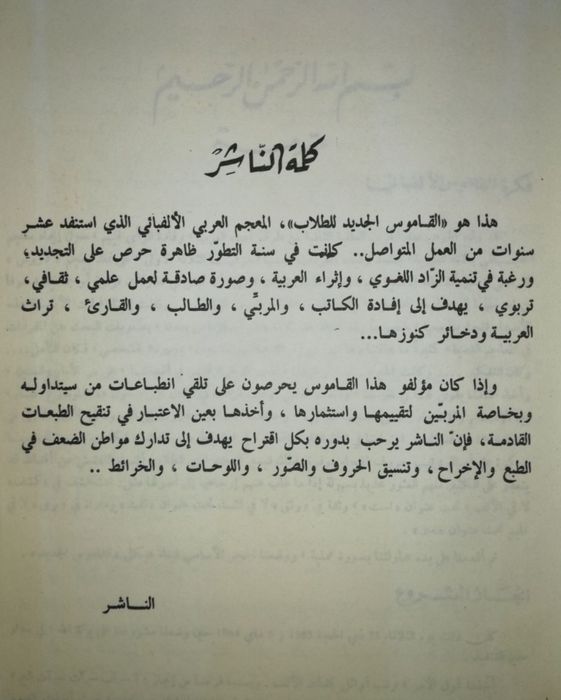 كلمة النّاشِرْ
هذا هو «القاموس الجديد للطلاب»، المعجم العربي الألفبائي الذي استنفد عشر
سنوات من العمل المتواصل.. كانت في سنة التطوّر ظاهرة حرص على التجديد؛
ورغبة في تنمية الزّاد اللغوي ، وإثراء العربية ، وصورة صادقة لعمل علمي ، ثقافي،
تربوي ، يهدف إلى إفادة الكاتب، والمربّي ، والطالب ، والقارئ ، تراث
العربية ودخائر كنوزها...
وإذا كان مؤلفو هذا القاموس يحرصون على تلقي انطباعات من سيتداوله
وبخاصة المربّين لتقييمها واستثمارها ، وأخذها بعين الاعتبار في تنقيح الطبعات
القادمة، فإن الناشر يرحب بدوره بكل اقتراح يهدف إلى تدارك مواطن الضعف في
الطبع والإخراح ، وتنسيق الحروف والصّور ، واللوحات ، والخرائط ..
الناشر